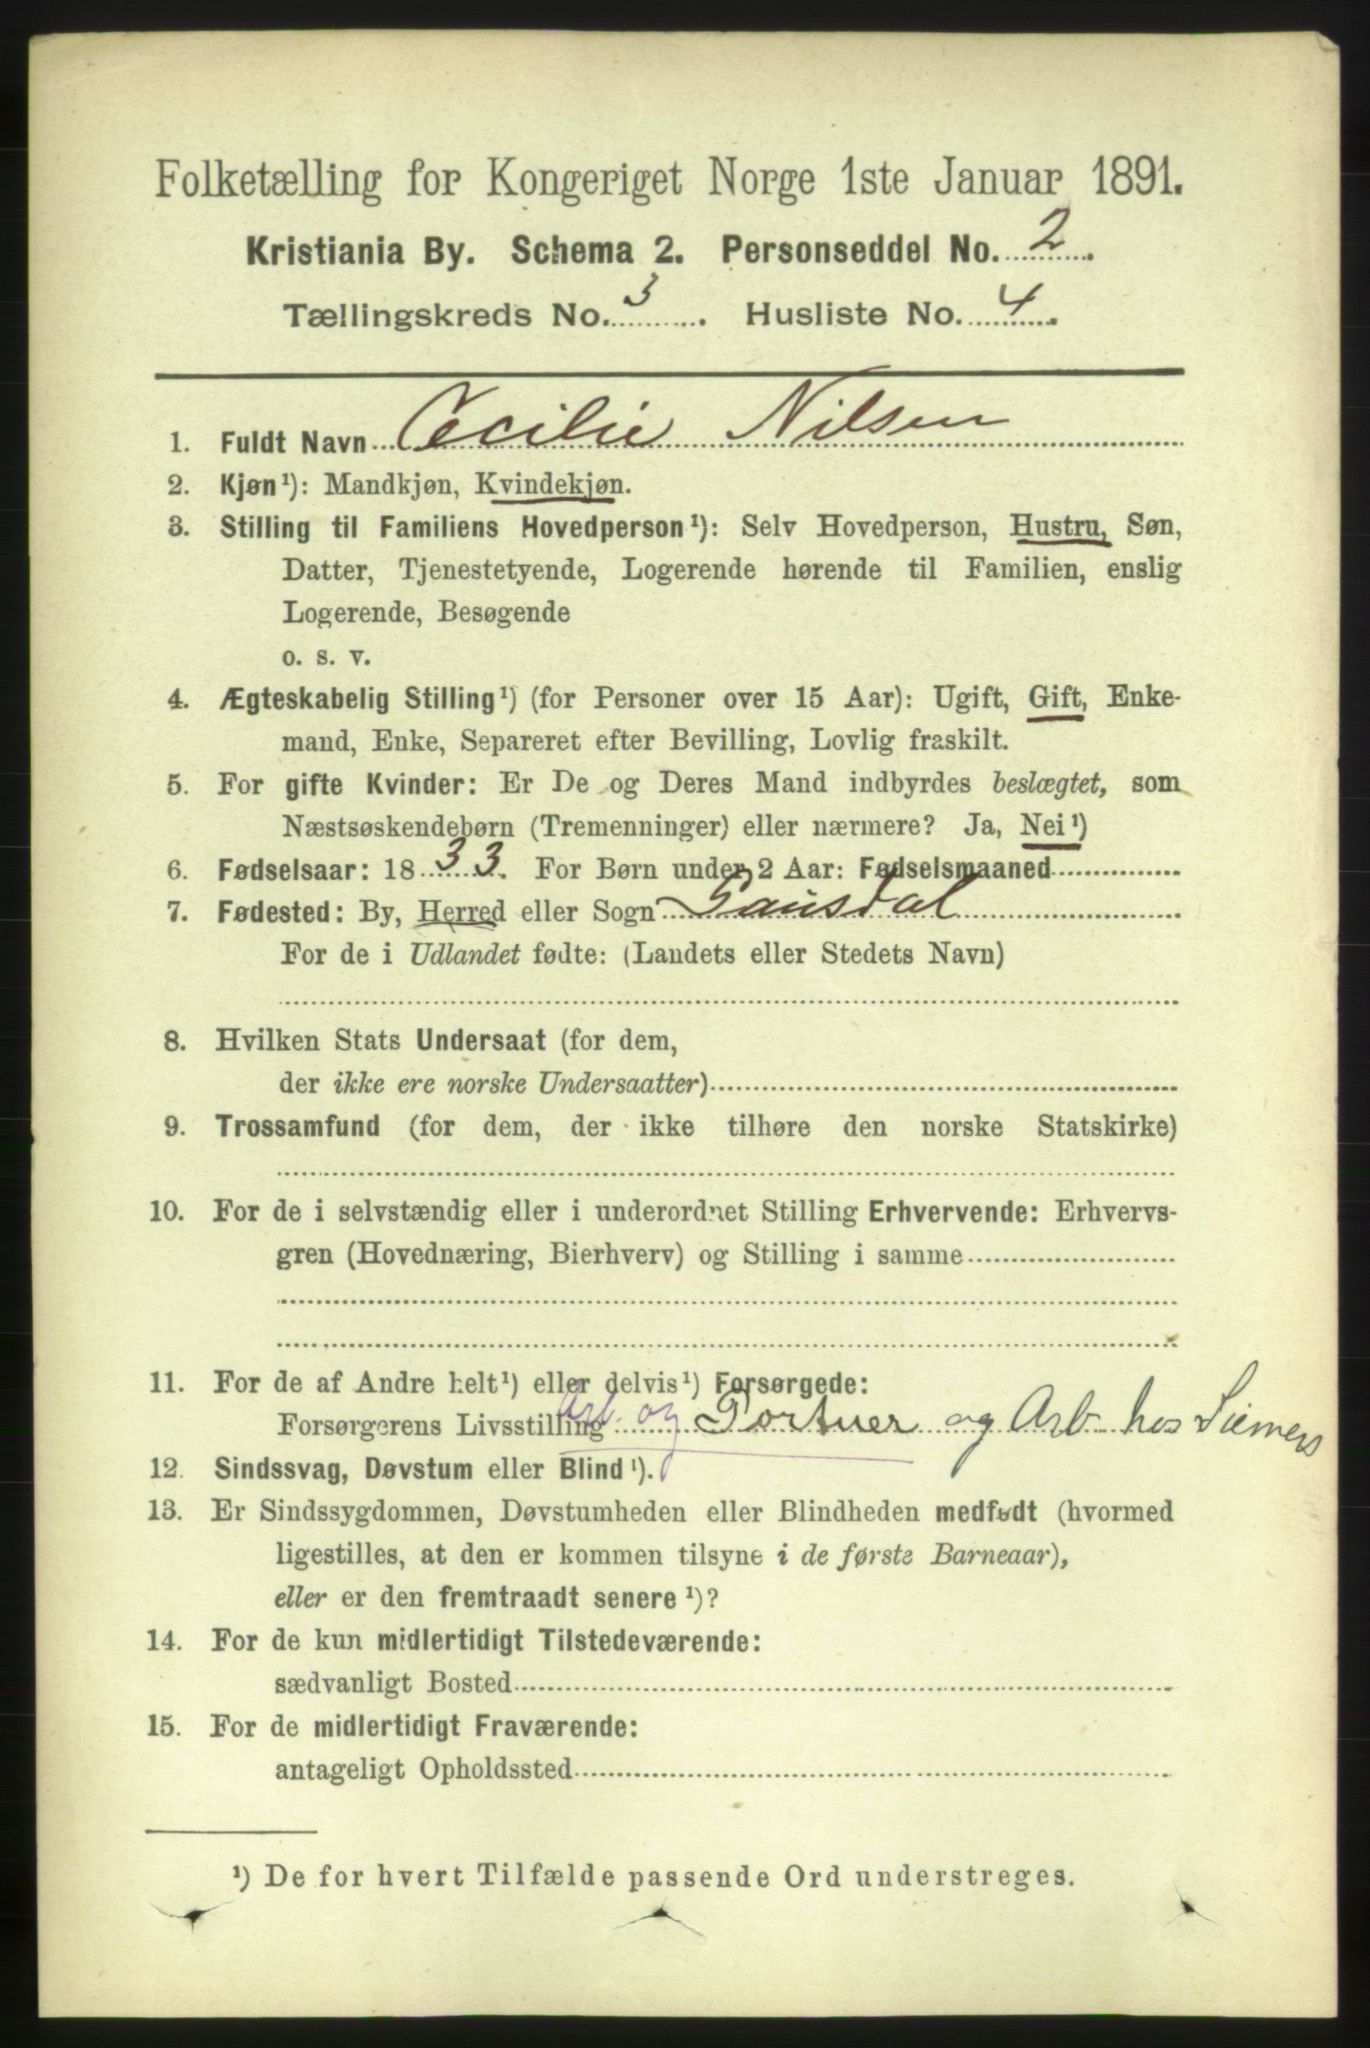 Folketælling for Kongeriget Norge 1ste Januar 1891.
Kristiania By. Schema 2. Personseddel No. 2.
Tællingskreds No. 3. Husliste No. 4.
1. Fuldt Navn Cecilie Nilsen
2. Kjøn¹): Mandkjøn, Kvindekjøn.
3. Stilling til Familiens Hovedperson¹): Selv Hovedperson, Hustru, Søn,
Datter, Tjenestetyende, Logerende hørende til Familien, enslig
Logerende, Besøgende
o. s. v.
4. Ægteskabelig Stilling¹) (for Personer over 15 Aar): Ugift, Gift, Enke-
mand, Enke, Separeret efter Bevilling, Lovlig fraskilt.
5. For gifte Kvinder: Er De og Deres Mand indbyrdes beslægtet, som
Næstsøskendebørn (Tremenninger) eller nærmere? Ja, Nei¹)
6. Fødselsaar: 1833. For Børn under 2 Aar: Fødselsmaaned
7. Fødested: By, Herred eller Sogn Gausdal
For de i Udlandet fødte: (Landets eller Stedets Navn)
8. Hvilken Stats Undersaat (for dem,
der ikke ere norske Undersaatter)
9. Trossamfund (for dem, der ikke tilhøre den norske Statskirke)
10. For de i selvstændig eller i underordnet Stilling Erhvervende: Erhvervs-
gren (Hovednæring, Bierhverv) og Stilling i samme
11. For de af Andre helt¹) eller delvis¹) Forsørgede:
Forsørgerens Livsstilling Arb. og Portner og Arb hos Siemers
12. Sindssvag, Døvstum eller Blind¹).
13. Er Sindssygdommen, Døvstumheden eller Blindheden medfødt (hvormed
ligestilles, at den er kommen tilsyne i de første Barneaar),
eller er den fremtraadt senere¹)?
14. For de kun midlertidigt Tilstedeværende:
sædvanligt Bosted
15. For de midlertidigt Fraværende:
antageligt Opholdssted
¹) De for hvert Tilfælde passende Ord understreges.